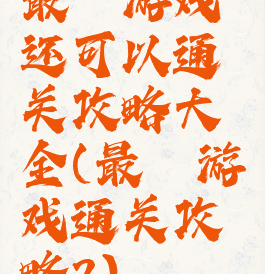 最 游戏
还可以通
关攻略大
全(最 游
戏通关攻
略?)